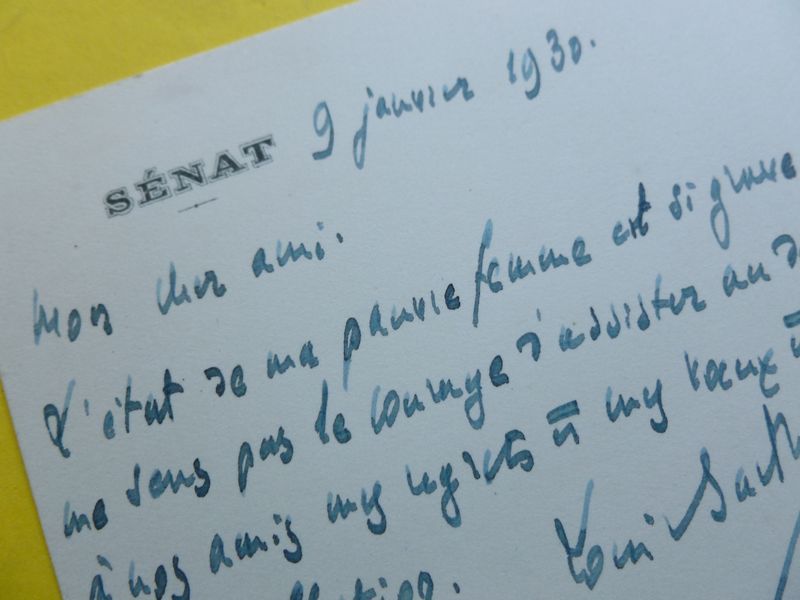 SÉNAT
9 janvier 1930.
Mon cher ami.
L'état de ma pauvre femme est si grave
me sens pas le courage d'assister au
à nos amis mes regrets et mes vœux
Louis